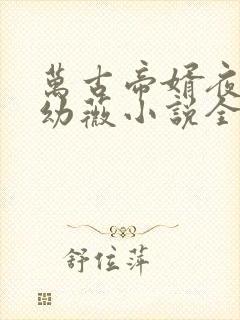 萬古帝婿夜
幼薇小說全
舒位萍